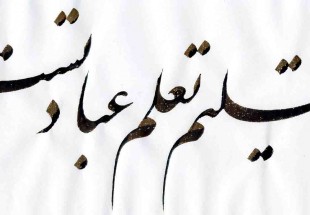 تسلیم تعلم عبادتست